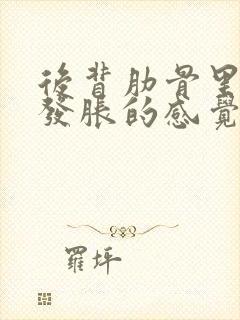 後背肋骨里
發脹的感覺
羅坪